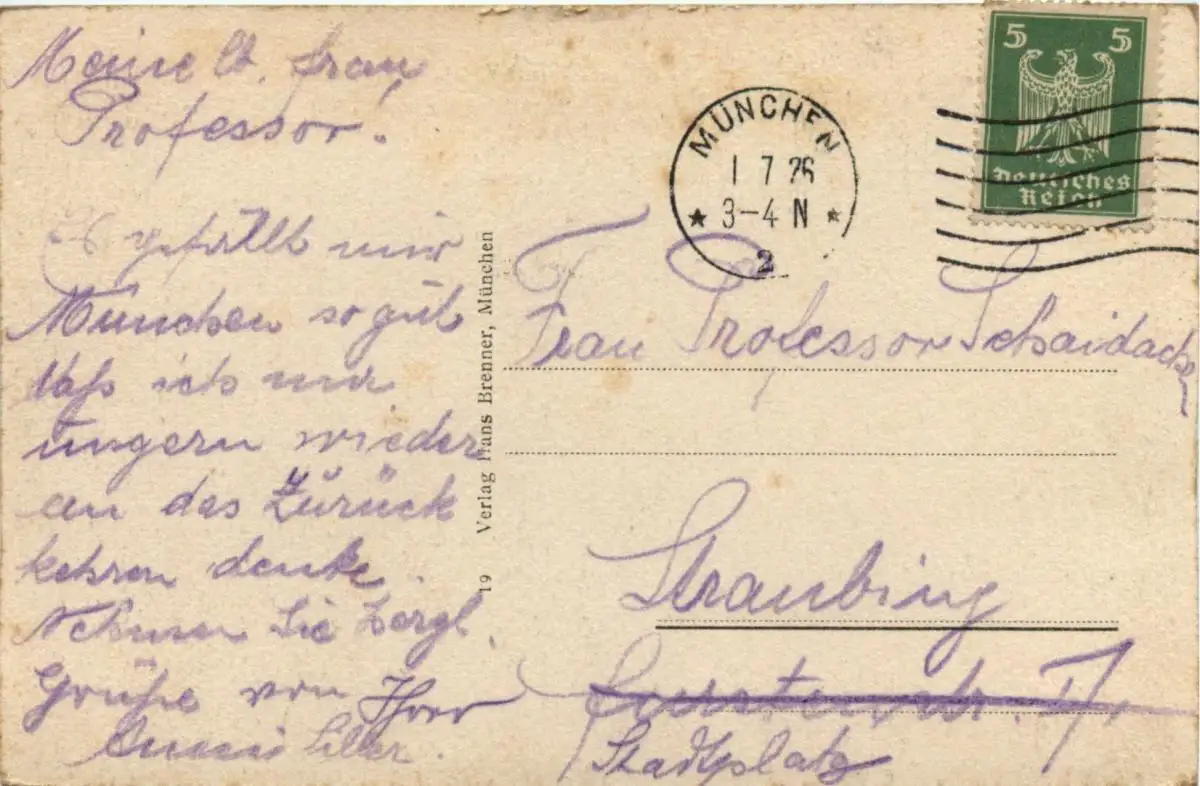 Meine lb. Frau
Professor.
Es gefällt mir
München so gut
daß ich nur
ungern wieder
an das Zurück
kehren denke.
Nehmen Sie herzl.
Grüße von Ihrer
19 Verlag Hans Brenner, München
MÜNCHEN
1 7 26
3-4 N
2
5 5
Deutsches
Reich
Frau Professor Schaidack
Straubing
Stadtplatz